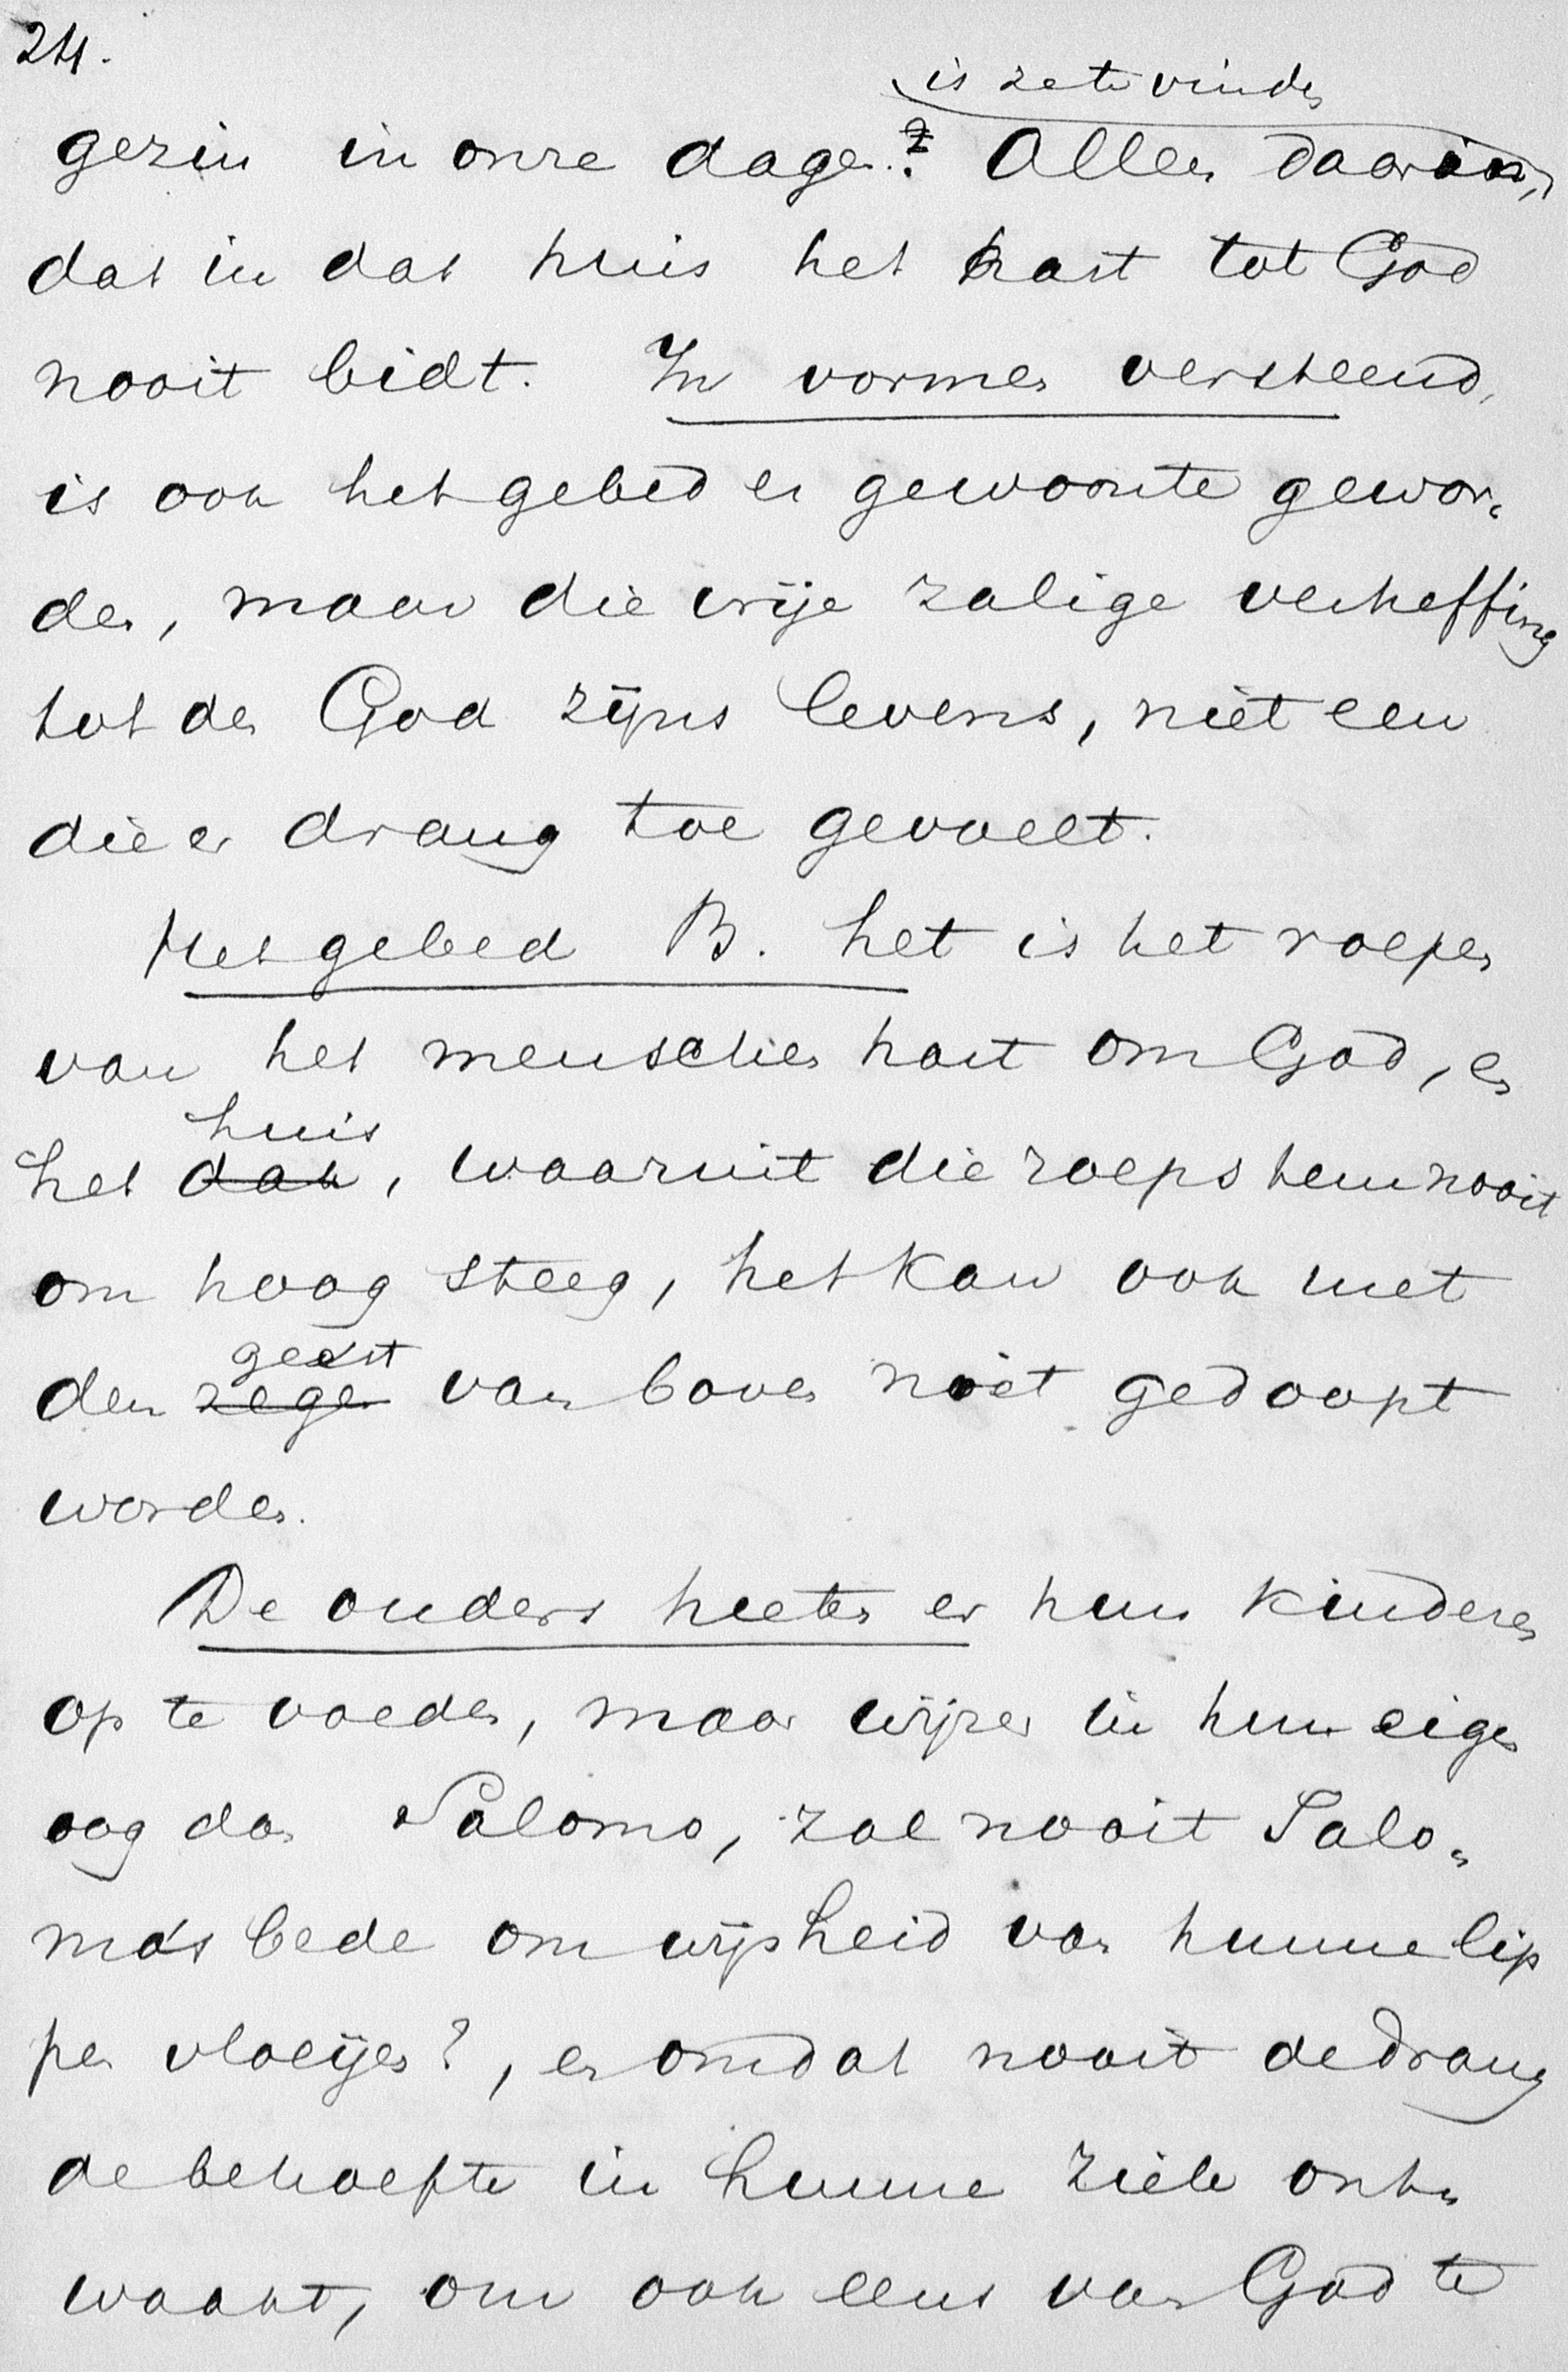 24.
is ze te vinden
gezin in onze dagen? Alleen daarin,
dat in dat huis het hart tot God
nooit bidt. In vormen versteend,
is ook het gebed er gewoonte gewor„
den, maar die vrije zalige verheffing
tot den God zijns levens, niet een
die er drang toe gevoelt.
Het gebed B. het is het roepen
van het menschen hart om God, en
huis
het dak, waaruit die roepstem nooit
om hoog steeg, het kan ook met
geest
den zegen van boven niet gedoopt
worden.
De ouders heeten er hun kinderen
op te voeden, maar wijzer in hun eigen
oog dan Salomo, zal nooit Salo„
mo's bede om wijsheid van hunne lip
pen vloeijen?, en omdat nooit de drang
de behoefte in hunne ziele ont„
waakt, om ook eens van God te